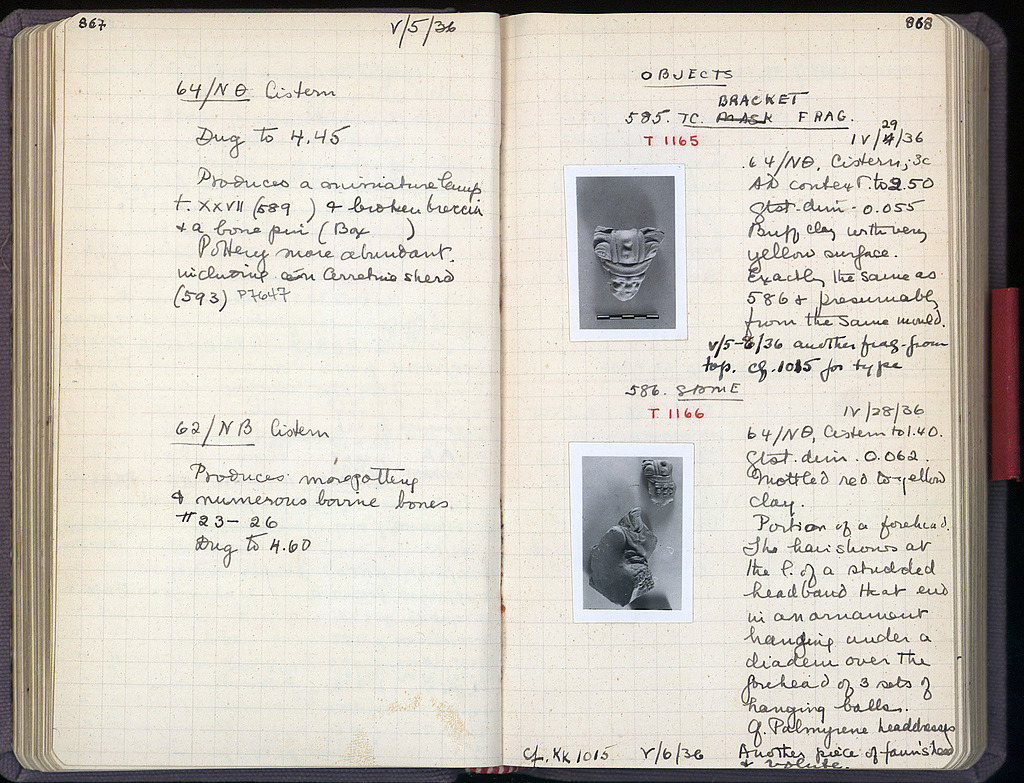 867
V/5/36
64/NΘ Cistern
Dug to 4.45
Produces a miniature lamp
t. XXVII (589 ) & broken breccia
& a bone pin (Box )
Pottery more abundant
including a Cerretnie sherd
(593) P7647
62/NB Cistern
Produces more pottery
& numerous bovine bones
# 23-26
Dug to 4.60
868
OBJECTS
BRACKET
585. TC. MASK FRAG.
T 1165
29
IV/4/36
64/NΘ, Cistern, 3c
AD context to 2.50
Gtst. dim. 0.055
Buff clay with very
yellow surface.
Exactly the same as
586 & presumably
from the same mould.
V/5-6/36 another frag. from
top. cf. 1015 for type
586. SAME
T 1166
IV/28/36
64/NΘ, Cistern to 1.40.
Gtst. dim. 0.062.
Mottled red to yellow
clay.
Portion of a forehead.
The hair shows at
the l. of a studded
headband that end
in an ornament
hanging under a
diadem over the
forehead of 3 sets of
hanging balls.
Cf. Palmyrene headdresses
Cf. KK 1015 V/6/36 Another piece of faun's head
& volute.